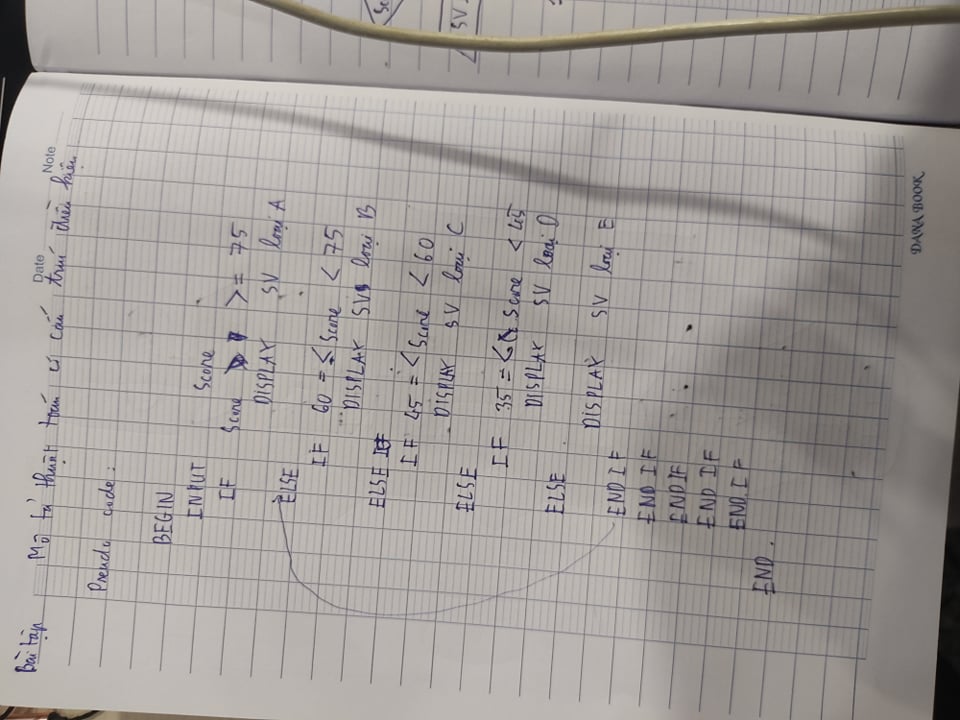 Date
Note
Bài tập Mô tả thuật toán có cấu trúc điều kiện
Pseudo code :
BEGIN
INPUT Score
IF Score >= 75
DISPLAY SV loại A
ELSE
IF 60 =< Score < 75
DISPLAY SV loại B
ELSE
IF 45 =< Score < 60
DISPLAY SV loại C
ELSE
IF 35 =< Score < 45
DISPLAY SV loại D
ELSE
DISPLAY SV loại E
END IF
END IF
ENDIF
END IF
END IF
END.
DANA BOOK
SV